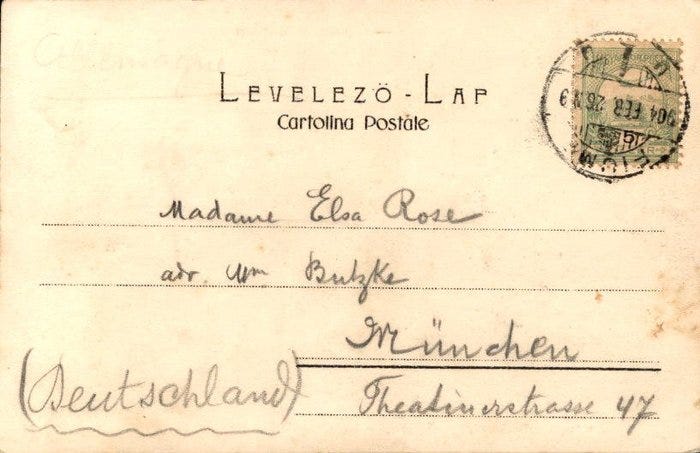 Allemagne
LEVELEZŐ - LAP
Cartolina Postale
904 FEB. 26
FIUME
5
Madame Elsa Rose
adr. Wm Butzke
München
(Deutschland)
Theatinerstrasse 47